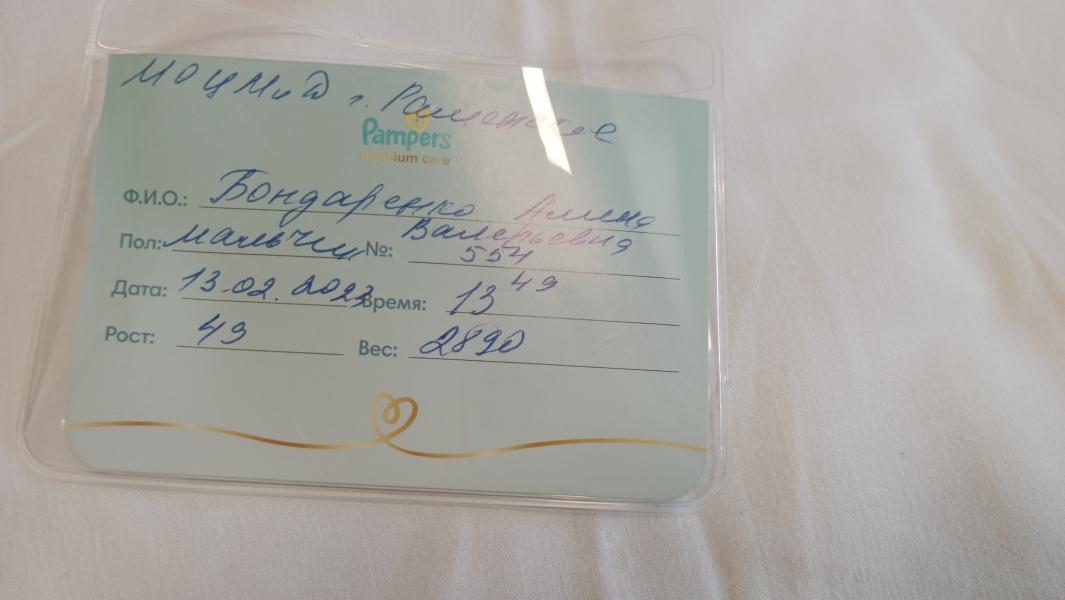 МОЦМиД г. Раменское
Pampers
premium care
Ф.И.О.: Бондаренко Алина
Валерьевна
Пол: мальчик №: 554
Дата: 13.02.2023 Время: 13 49
Рост: 49 Вес: 2890